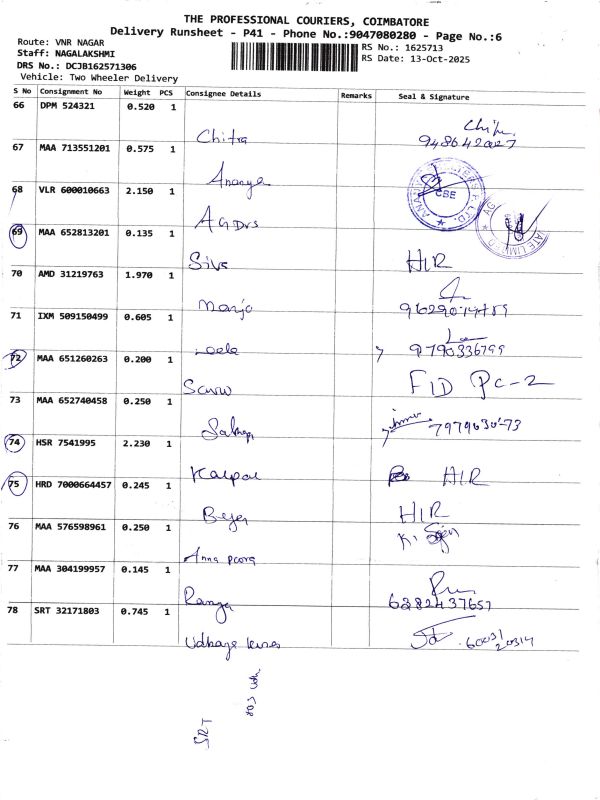 THE PROFESSIONAL COURIERS, COIMBATORE
Delivery Runsheet - P41 - Phone No.:9047080280 - Page No.:6
Route: VNR NAGAR
Staff: NAGALAKSHMI
DRS No.: DCJB162571306
Vehicle: Two Wheeler Delivery
RS No.: 1625713
RS Date: 13-Oct-2025
S No Consignment No Weight PCS Consignee Details Remarks Seal & Signature
66 DPM 524321 0.520 1 Chitra
67 MAA 713551201 0.575 1 Ananya
68 VLR 600010663 2.150 1 CBE
69 MAA 652813201 0.135 1 Siva HIR
70 AMD 31219763 1.970 1 Manjo
71 IXM 509150499 0.605 1 Leela 9790336799
72 MAA 651260263 0.200 1 FID PC-2
73 MAA 652740458 0.250 1
74 HSR 7541995 2.230 1 Kalpal HIR
75 HRD 7000664457 0.245 1 HIR
76 MAA 576598961 0.250 1 Anna poora
77 MAA 304199957 0.145 1 Ranga 6382437657
78 SRT 32171803 0.745 1
SRT